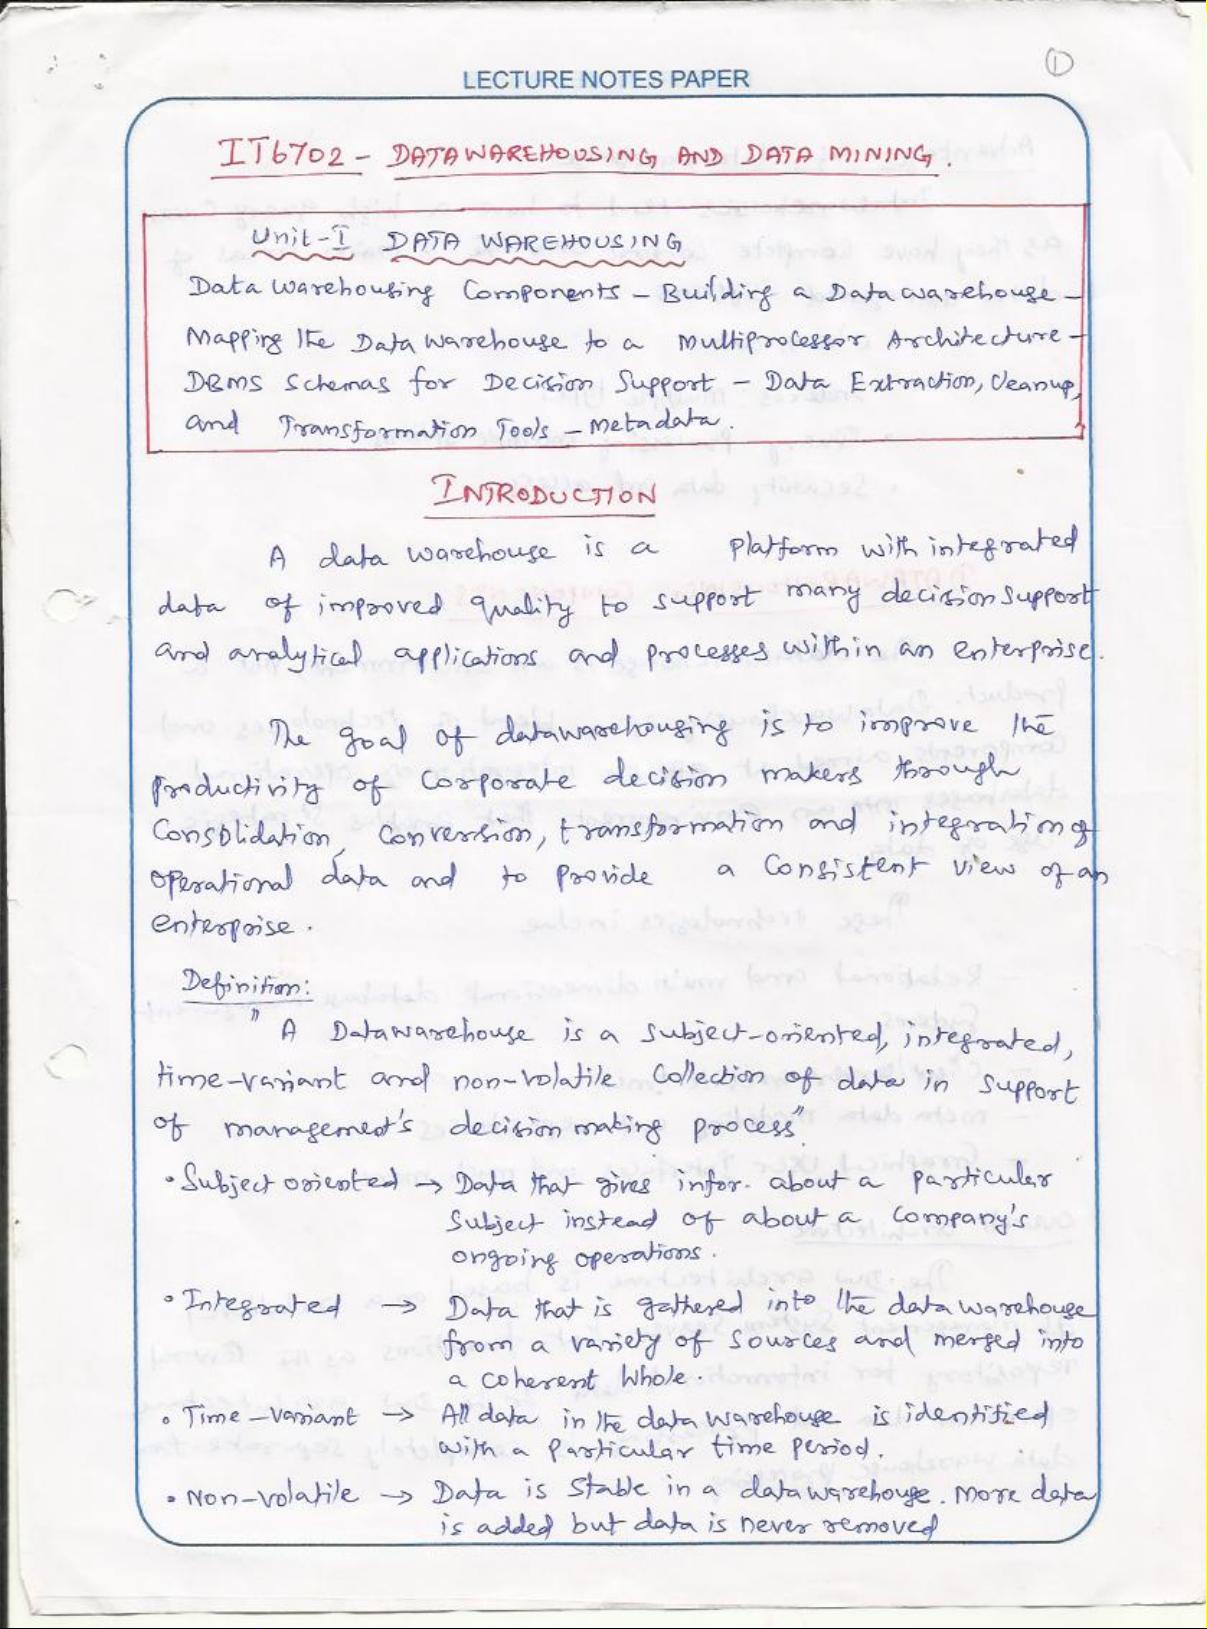 1
LECTURE NOTES PAPER
IT6702 - DATAWAREHOUSING AND DATA MINING.
Unit-I DATA WAREHOUSING
Data Warehousing Components - Building a Data warehouse -
Mapping the Data Warehouse to a Multiprocessor Architecture -
DBMS Schemas for Decision Support - Data Extraction, Cleanup,
and Transformation Tools - Metadata.
INTRODUCTION
A data warehouse is a platform with integrated
data of improved quality to support many decision support
and analytical applications and processes within an enterprise.
The goal of datawarehousing is to improve the
productivity of corporate decision makers through
Consolidation, conversion, transformation and integration of
operational data and to provide a consistent view of an
enterprise.
Definition:
" A Datawarehouse is a subject-oriented, integrated,
time-variant and non-volatile collection of data in support
of management's decision making process"
• Subject oriented → Data that gives infor. about a particular
Subject instead of about a company's
ongoing operations.
• Integrated → Data that is gathered into the data warehouse
from a variety of sources and merged into
a coherent whole.
• Time-variant → All data in the data warehouse is identified
with a particular time period.
• Non-volatile → Data is stable in a datawarehouse. More data
is added but data is never removed